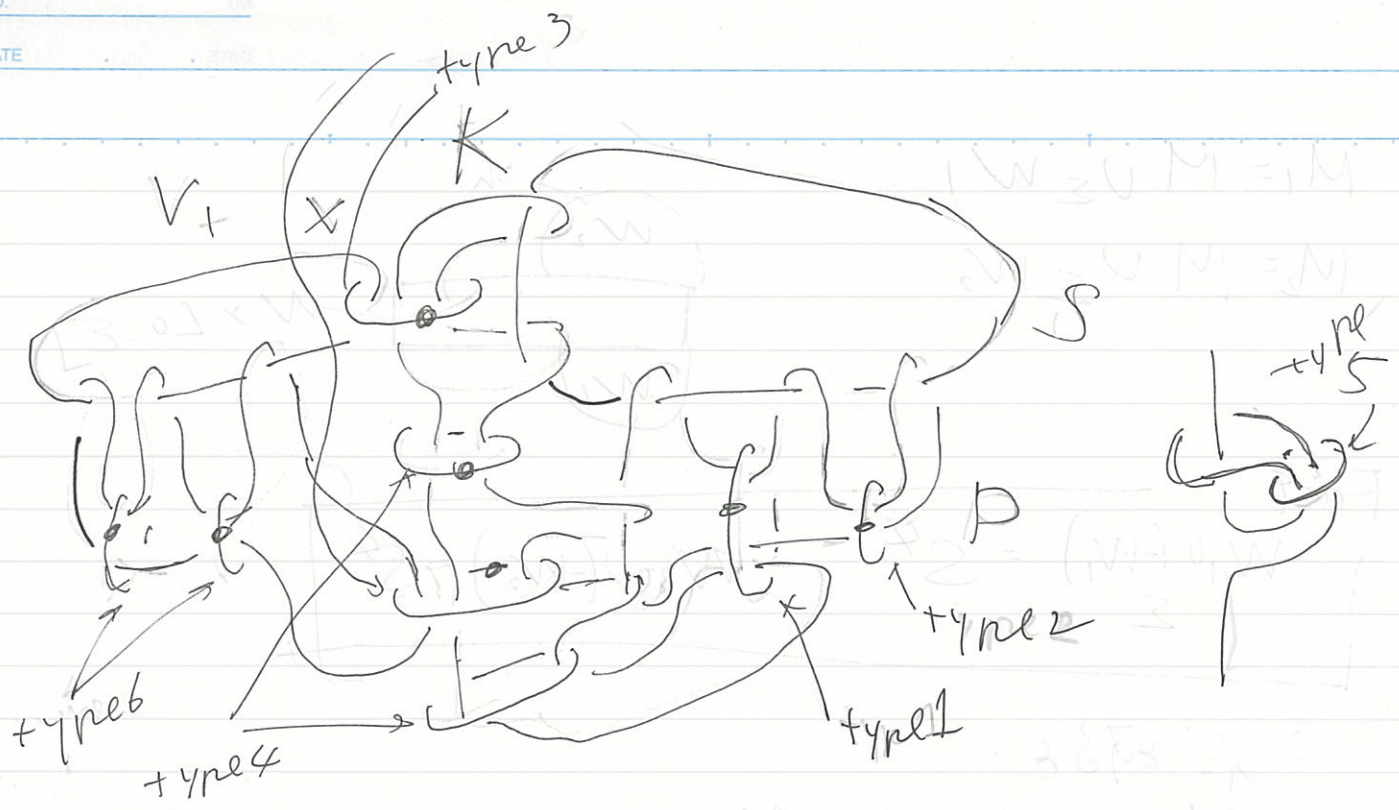 ATE
type3
K
V+ X
S
type5
P
type2
type6
type4
type1